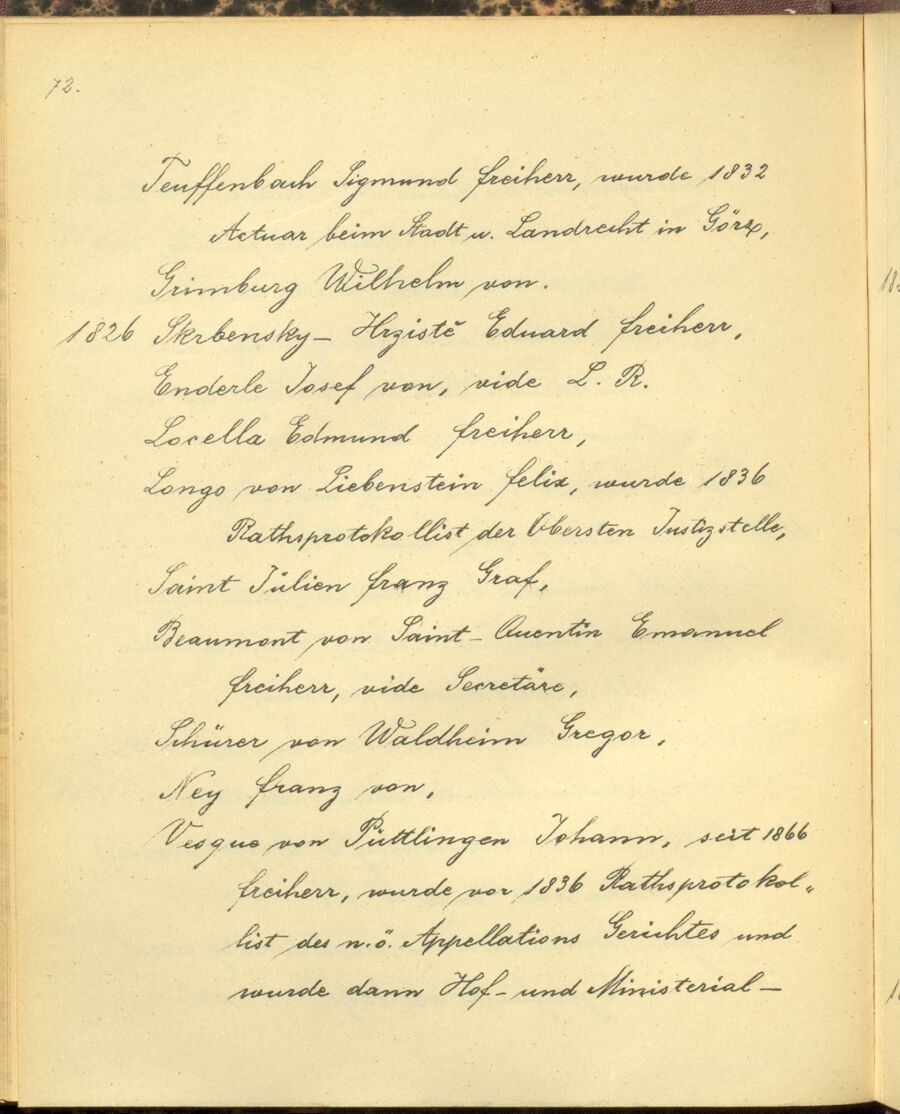 72.
Teuffenbach Sigmund freiherr, wurde 1832
Actuar beim Stadt u. Landrecht in Görz,
Grimburg Wilhelm von.
1826 Skrbensky – Hrzistě Eduard freiherr,
Enderle Josef von, vide L. R.
Locella Edmund freiherr,
Longo von Liebenstein felix, wurde 1836
Rathsprotokollist der Obersten Justizstelle,
Saint Jülien franz Graf,
Beaumont von Saint-Quentin Emanuel
freiherr, vide Secretäre,
Schürer von Waldheim Gregor,
Ney franz von,
Vesque von Püttlingen Johann, seit 1866
freiherr, wurde vor 1836 Rathsprotokol„
list des n.ö. Appellations Gerichtes und
wurde dann Hof- und Ministerial –